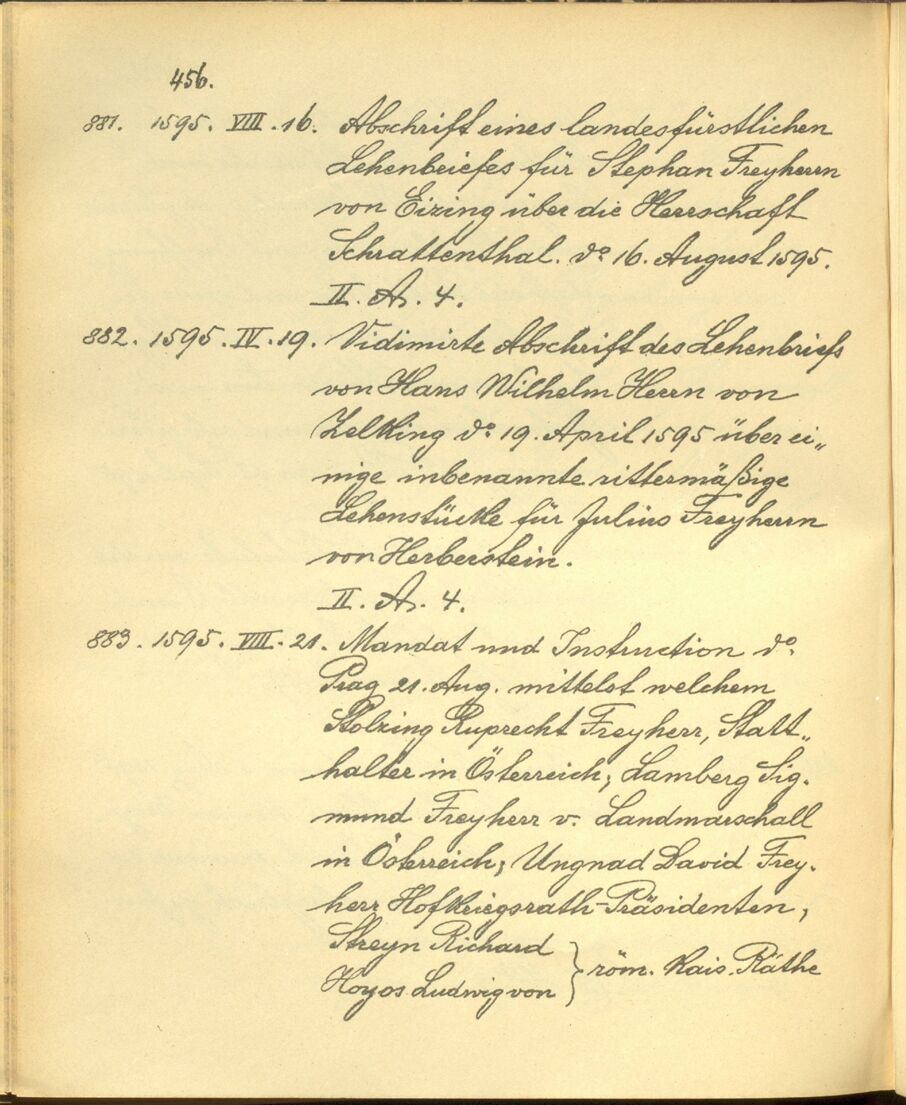 456.
881. 1595. VIII. 16. Abschrift eines landesfürstlichen
Lehenbriefes für Stephan Freyherrn
von Eizing über die Herrschaft
Schrattenthal. do 16. August 1595.
II. A. 4.
882. 1595. IV. 19. Vidimirte Abschrift des Lehenbriefs
von Hans Wilhelm Herrn von
Zelking do 19. April 1595 über ei„
nige inbenannte rittermäßige
Lehenstücke für Julius Freyherrn
von Herberstein.
II. A. 4.
883. 1595. VIII. 21. Mandat und Instruction do
Prag 21. Aug. mittelst welchem
Stolzing Ruprecht Freyherr, Statt„
halter in Österreich; Lamberg Sig.
mund Freyherr v. Landmarschall
in Österreich; Ungnad David Frey.
herr Hofkriegsrath-Präsidenten,
Streyn Richard
Hoyos Ludwig von } röm. Kais. Räthe